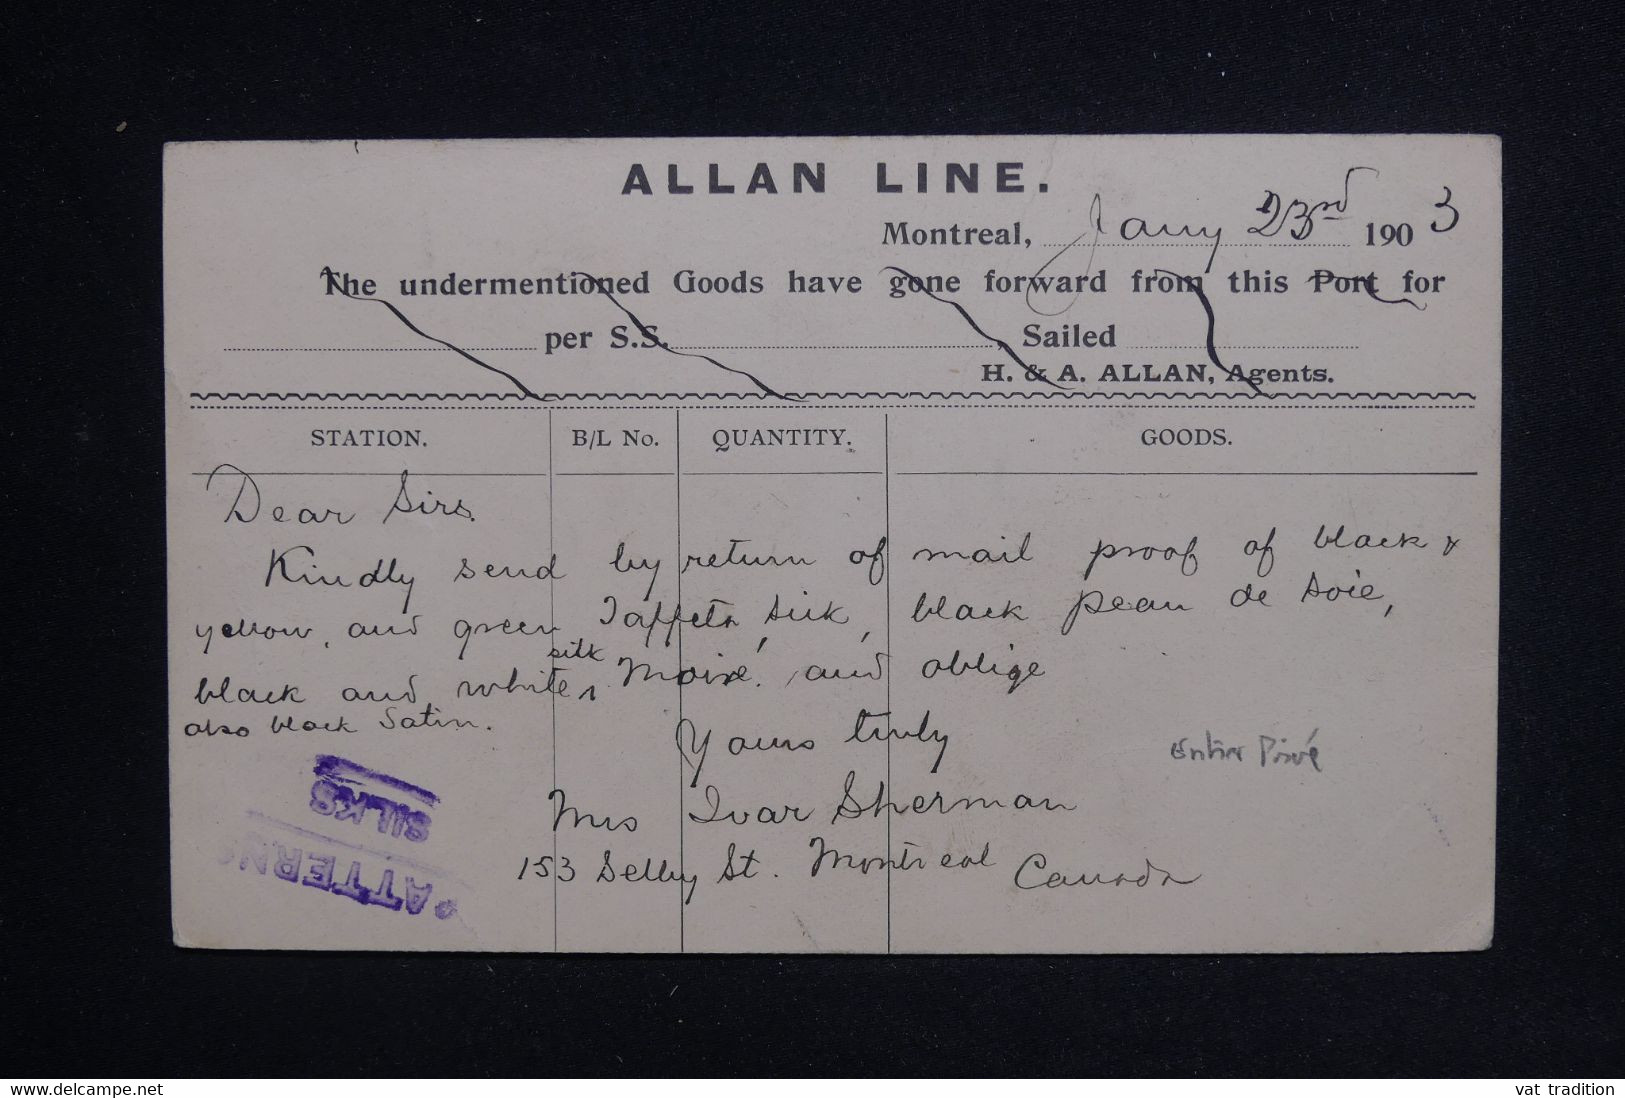 ALLAN LINE.
Montreal, Jany 23rd 1903
The undermentioned Goods have gone forward from this Port for
per S.S. , Sailed
H. & A. ALLAN, Agents.
STATION. B/L No. QUANTITY. GOODS.
Dear Sirs.
Kindly send by return of mail proof of black &
yellow, and green Taffeta silk, black peau de soie,
silk
black and white Moiré. and oblige
also black Satin.
Yours truly
Entier Privé
SILKS
Mrs Ivar Sherman
PATTERN
153 Selby St. Montreal Canada
www.delcampe.net
vat tradition